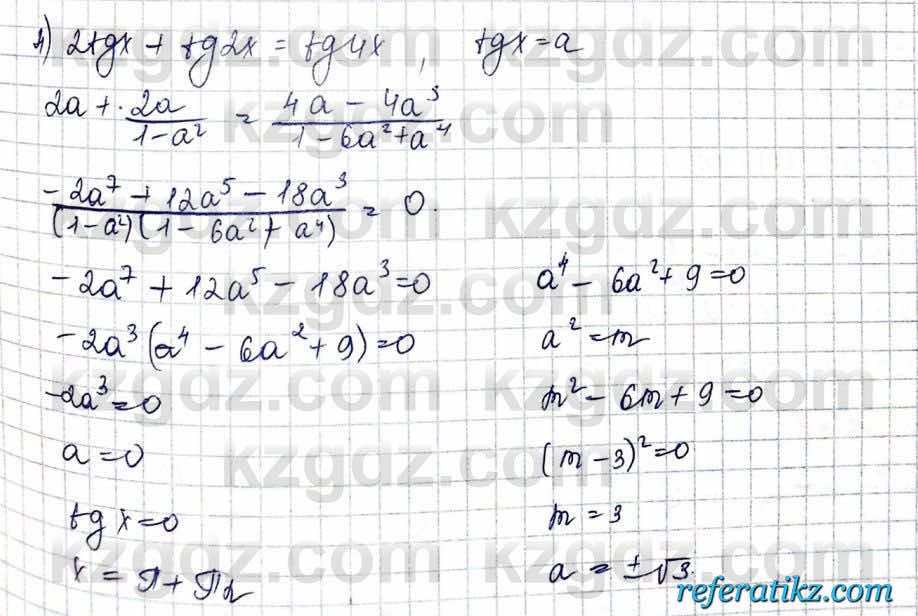 4) 2tgx + tg2x = tg4x, tgx = a
2a + 2a/(1-a²) = (4a - 4a³)/(1 - 6a² + a⁴)
(-2a⁷ + 12a⁵ - 18a³)/((1-a²)(1 - 6a² + a⁴)) = 0.
-2a⁷ + 12a⁵ - 18a³ = 0
-2a³(a⁴ - 6a² + 9) = 0
-2a³ = 0
a = 0
tg x = 0
x = π + πn
a⁴ - 6a² + 9 = 0
a² = m
m² - 6m + 9 = 0
(m - 3)² = 0
m = 3
a = ±√3.
kzgdz.com
referatikz.com